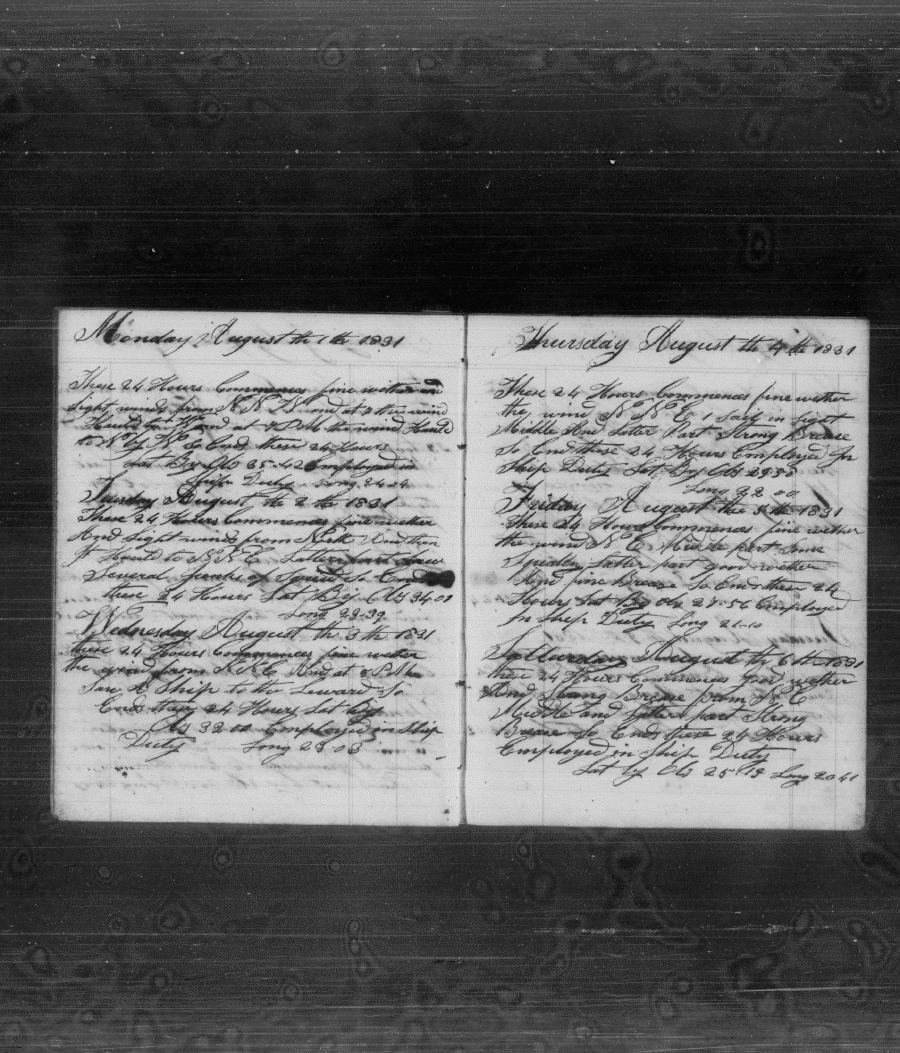 Monday August th 1th 1831
These 24 Hours Commences fine wether and
light winds from N N W and at 4 the wind
Hauld to W and at 4 PM the wind Hauld
to N by W So Ends these 24 Hours
Lat By Obs 35-42 Employed in
Ship Duty Long 24-24
Tuesday August th 2 th 1831
These 24 Hours Commences fine wether
And light winds from North And then
it Hauld to N N E Latter part Saw
Several of So Ends
these 24 Hours Lat By Obs 34-00
Long 23-39
Wednesday August th 3 th 1831
these 24 Hours Commences fine wether
the wind from N N E And at 2 PM
Saw A Ship to the Leward So
Ends these 24 Hours Lat By
Obs 32-00 Employed in Ship
Duty Long 23-03
Thursday August th 4 th 1831
These 24 Hours Commences fine wether
the wind N N E 1 Sail in Sight
Middle And Latter Part Strong Breese
So End these 24 Hours Employed In
Ship Duty Lat By Obs 29-55
Long 22-00
Friday August the 5 th 1831
These 24 Hours Commences fine wether
the wind N E Middle part Some
Squales Latter part good wether
And fine Breese So Ends these 24
Hours Lat By Obs 27-56 Employed
In Ship Duty Long 21-10
Satturday August th 6 th 1831
these 24 Hours Commences good wether
And Strong Breese from N E
Middle and Latter part Strong
Breese So Ends these 24 Hours
Employed in Ship Duty
Lat by Obs 25-19 Long 20-41